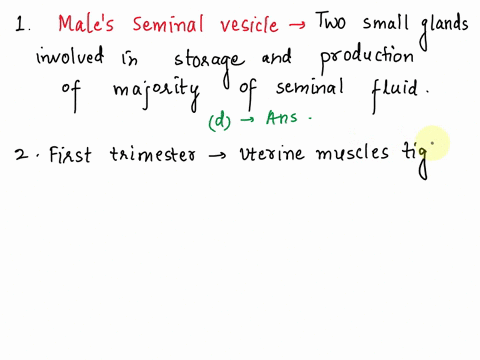 1. Male's seminal vesicle → Two small glands
involved in storage and production
of majority of seminal fluid.
(d) → Ans.
2. First trimester → Uterine muscles tig